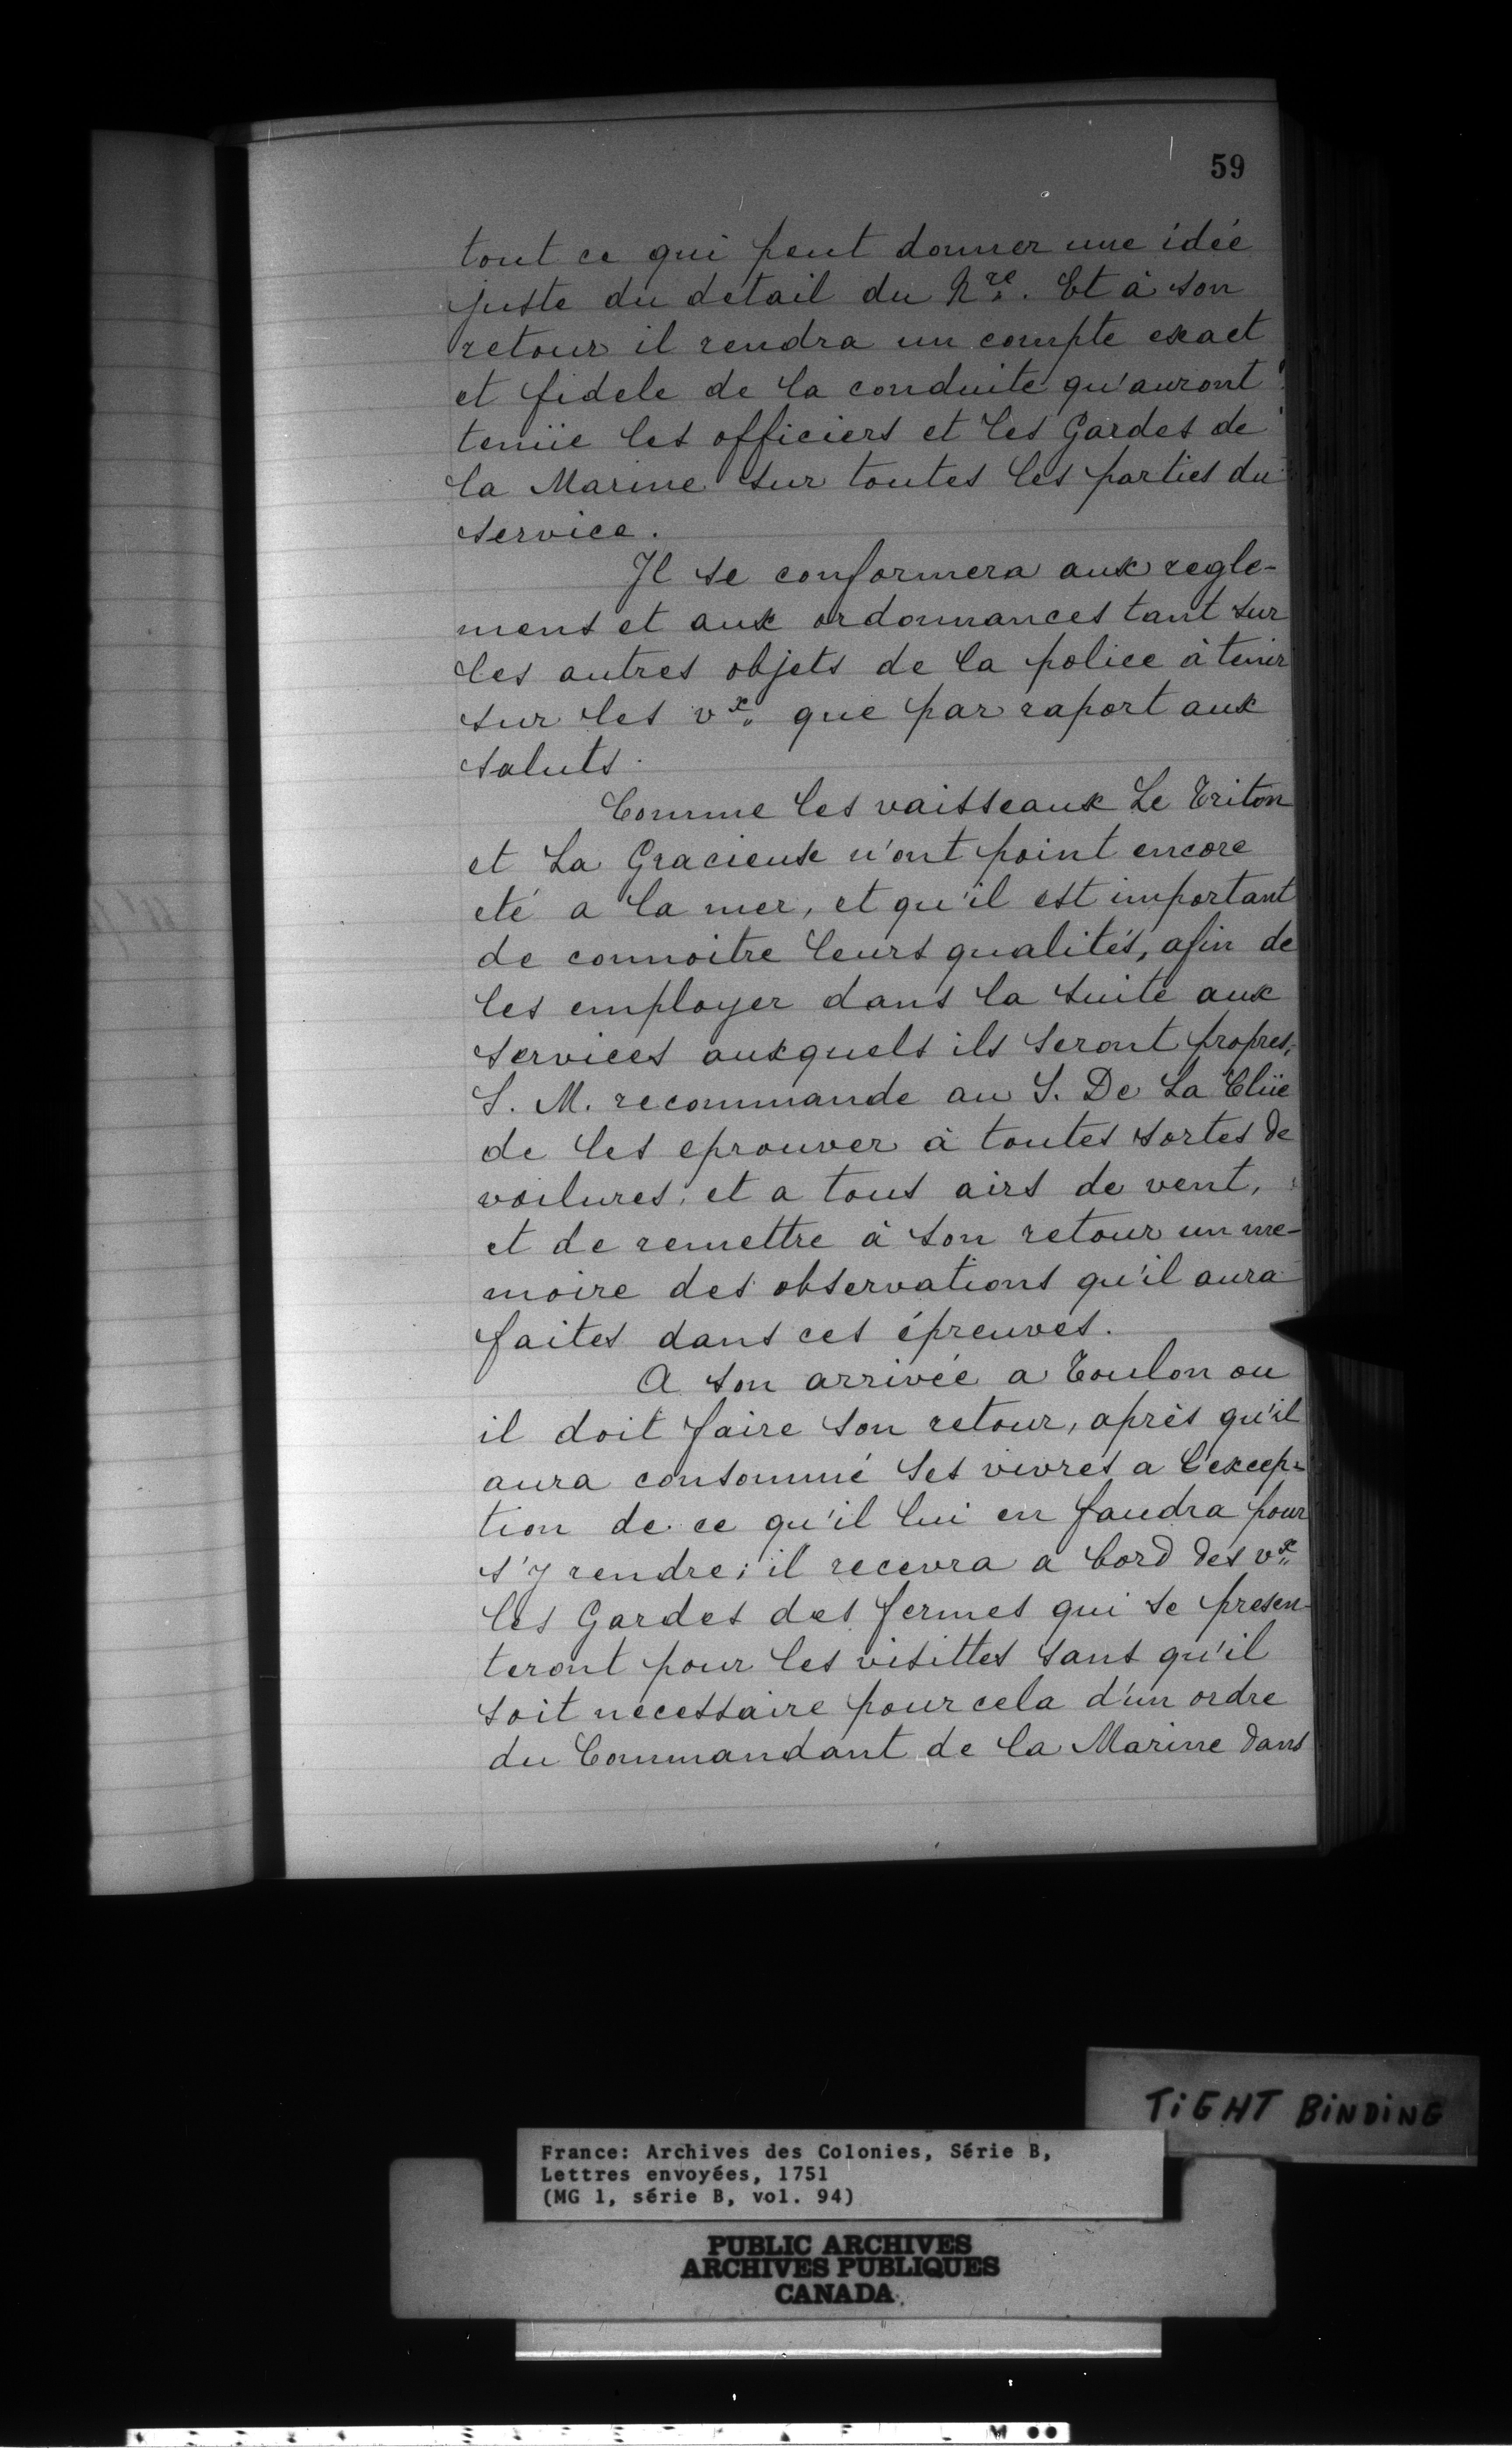 59
tout ce qui peut donner une idée
juste du detail du Nre. Et à son
retour il rendra un compte exact
et fidele de la conduite qu'auront
tenüe les officiers et les Gardes de
la Marine sur toutes les parties du
service.
Il se conformera aux regle-
mens et aux ordonnances tant sur
les autres objets de la police à tenir
sur les vx. que par raport aux
saluts.
Comme les vaisseaux Le Triton
et La Gracieuse n'ont point encore
eté a la mer, et qu'il est important
de connoitre leurs qualités, afin de
les employer dans la suite aux
services auxquels ils seront propres,
S. M. recommande au S. De La Clüe
de les eprouver à toutes sortes de
voilures, et a tous airs de vent,
et de remettre à son retour un me-
moire des observations qu'il aura
faites dans ces épreuves.
A son arrivée a Toulon ou
il doit faire son retour, après qu'il
aura consommé ses vivres a l'excep-
tion de ce qu'il lui en faudra pour
s'y rendre; il recevra a bord des vx.
les Gardes des fermes qui se presen-
teront pour les visittes sans qu'il
soit necessaire pour cela d'un ordre
du Commandant de la Marine dans
TiGHT BiNDiNG
France: Archives des Colonies, Série B,
Lettres envoyées, 1751
(MG 1, série B, vol. 94)
PUBLIC ARCHIVES
ARCHIVES PUBLIQUES
CANADA